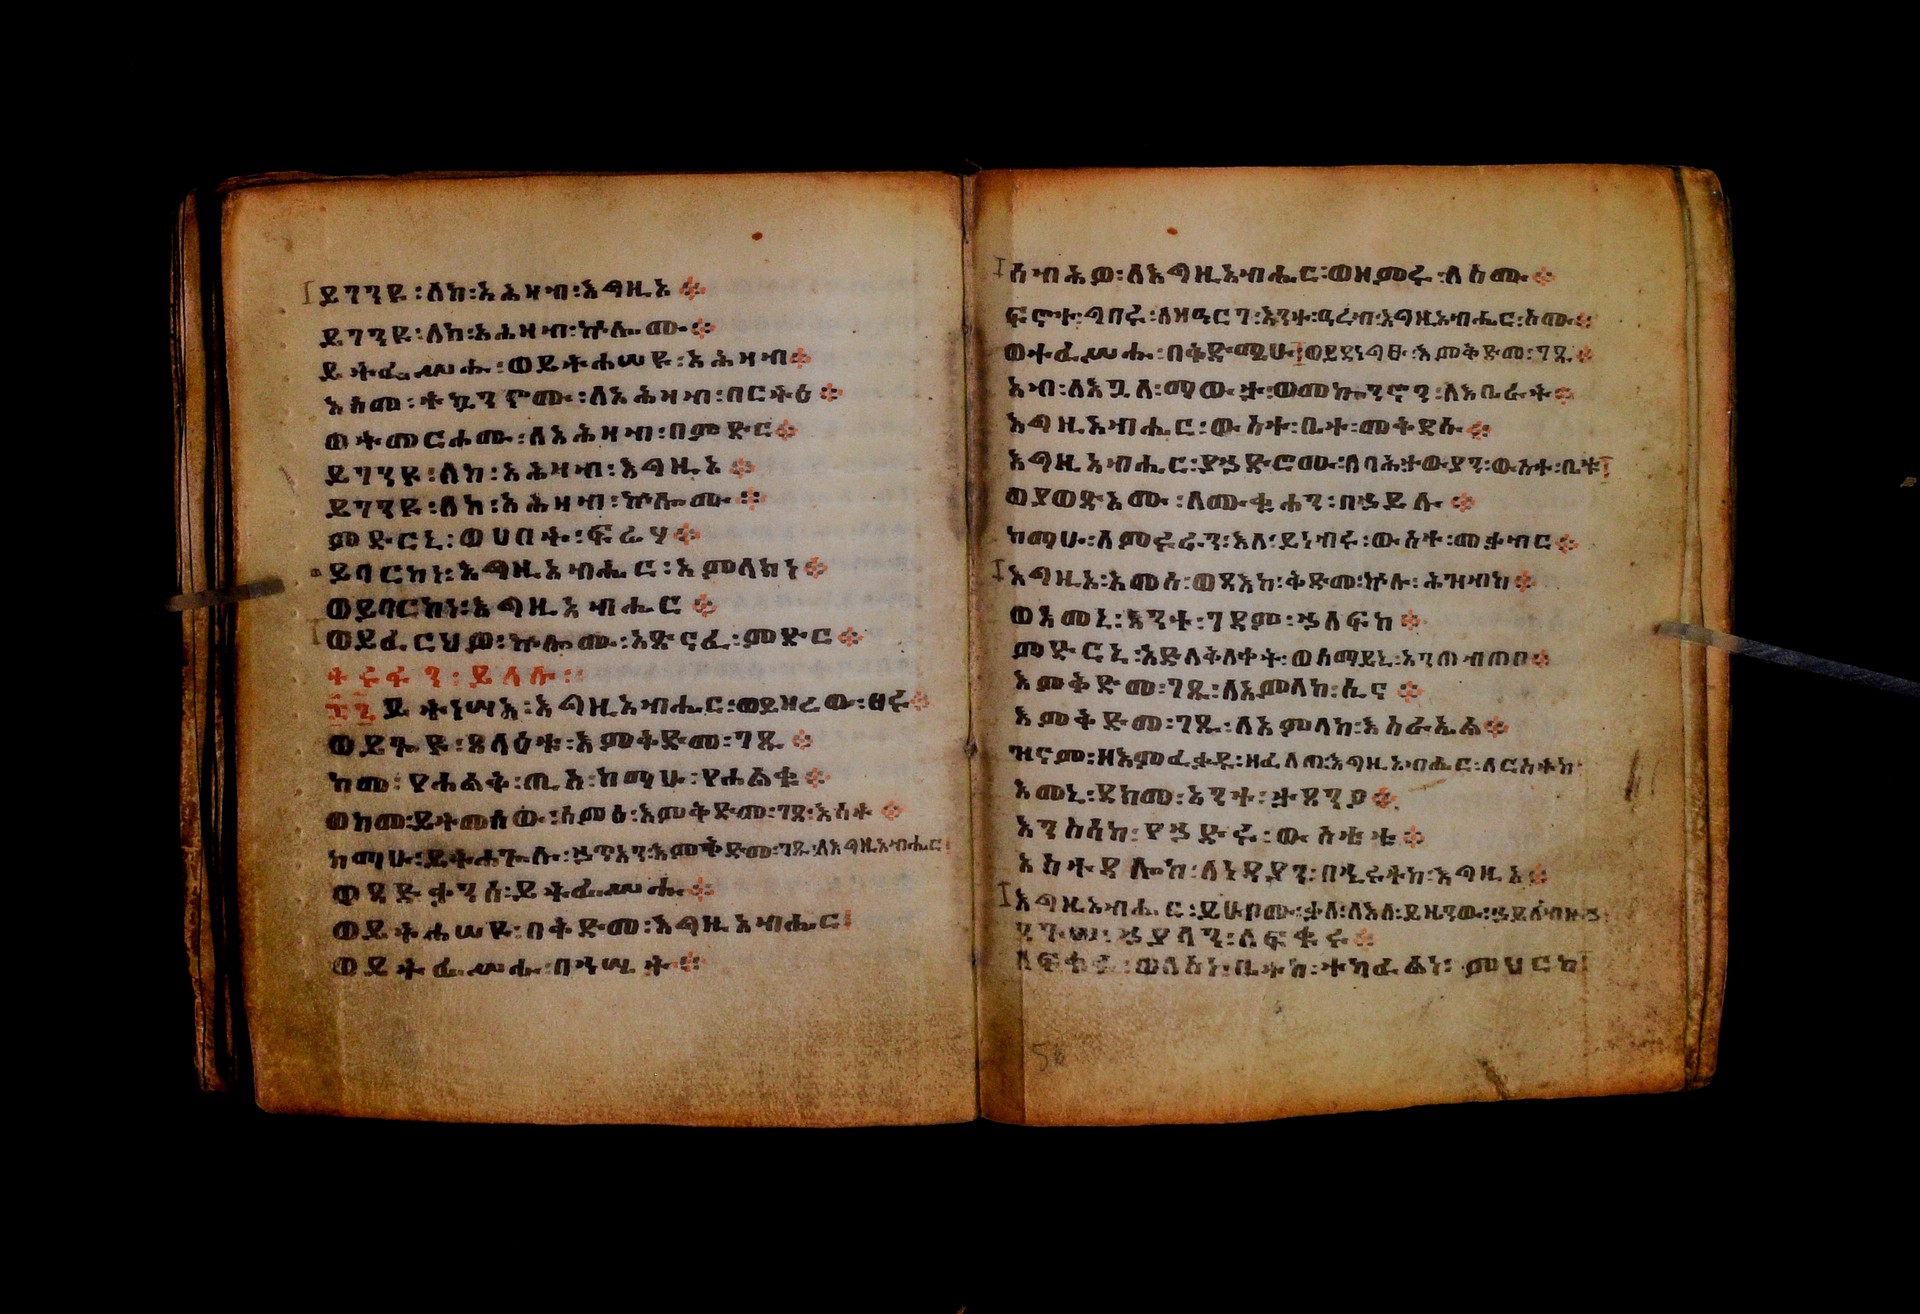 ይግነዩ፡ለከ፡አሕዛብ፡እግዚኦ
ይገንዩ፡ለከ፡አሕዛብ፡ኵሎሙ፨
ይትፌሥሑ፡ወይትሐሠዩ፡አሕዛብ
እስመ፡ትኴንኖሙ፡ለአሕዛብ፡በርትዕ
ወትመርሖሙ፡ለአሕዛብ፡በምድር
ይገንዩ፡ለከ፡አሕዛብ፡እግዚኦ
ይገንዩ፡ለከ፡አሕዛብ፡ኵሎሙ፨
ምድርኒ፡ወሀበት፡ፍሬሃ
ይባርከነ፡እግዚአብሔር፡አምላክነ
ወይባርከነ፡እግዚአብሔር
ወይፈርህዎ፡ኵሎሙ፡አጽናፈ፡ምድር
ይትነሣእ፡እግዚአብሔር፡ወይዘረው፡ፀሩ
ወይጕዩ፡ጸላዕቱ፡እምቅድመ፡ገጹ
ከመ፡የሐልቅ፡ጢስ፡ከማሁ፡የሐልቁ
ወከመ፡ይትመሰው፡ሰምዕ፡እምቅድመ፡ገጸ፡እሳት
ከማሁ፡ይትሐጐሉ፡ኃጥአን፡እምቅድመ፡ገጹ፡ለእግዚአብሔር
ወጻድቃንሰ፡ይትፌሥሑ
ወይትሐሠዩ፡በቅድመ፡እግዚአብሔር
ወይትፌሥሑ፡በትፍሥሕት
ሰብሕዎ፡ለእግዚአብሔር፡ወዘምሩ፡ለስሙ
ፍኖተ፡ግበሩ፡ለዘዓርገ፡እንተ፡ዓረብ፡እግዚአብሔር፡ስሙ
ወተፈሥሑ፡በቅድሜሁ፡ወይደነግፁ፡እምቅድመ፡ገጹ
አብ፡ለእጓለ፡ማውታ፡ወመኰንኖን፡ለእቤራት
እግዚአብሔር፡ውስተ፡ቤተ፡መቅደሱ
እግዚአብሔር፡ያኃድሮሙ፡ለባሕታውያን፡ውስተ፡ቤት
ወያወጽኦሙ፡ለሙቁሐን፡በኃይሉ
ከማሁ፡ለምሩራን፡እለ፡ይነብሩ፡ውስተ፡መቃብር
እግዚኦ፡አመ፡ወፃእከ፡ቅድመ፡ኵሉ፡ሕዝብከ
ወአመኒ፡እንተ፡ገዳም፡ኃለፍከ
ምድርኒ፡አድለቅለቀት፡ወሰማይኒ፡አንጠብጠበ
እምቅድመ፡ገጹ፡ለአምላከ፡ሲና
እምቅድመ፡ገጹ፡ለአምላከ፡እስራኤል
ዝናመ፡ዘእምፈቃዱ፡ዘፈለጠ፡እግዚአብሔር፡ለርስትከ
እመኒ፡ደክመ፡አንተ፡ታጸንዖ
እንስሳከ፡የኃድሩ፡ውስቴቱ
አስተዳሎከ፡ለነዳያን፡በኂሩትከ፡እግዚኦ
እግዚአብሔር፡ይሁቦሙ፡ቃለ፡ለእለ፡ይዜንው፡ኃይለ፡ብዙኃ
ንጉሠ፡ኃያላን፡ለፍቁሩ
ለፍቁሩ፡ወለስነ፡ቤትከ፡ተካፈልነ፡ምህርካ